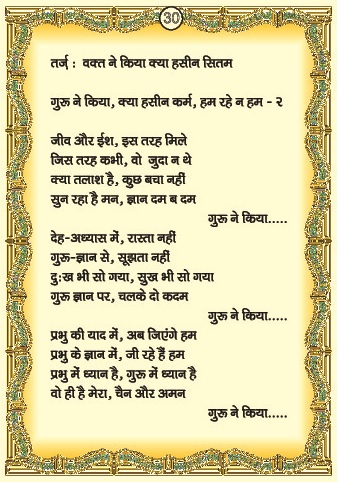 30
तर्ज : वक्त ने किया क्या हसीन सितम
गुरू ने किया, क्या हसीन कर्म, हम रहे न हम - २
जीव और ईश, इस तरह मिले
जिस तरह कभी, वो जुदा न थे
क्या तलाश है, कुछ बचा नहीं
सुन रहा है मन, ज्ञान दम ब दम
गुरू ने किया.....
देह-अध्यास में, रास्ता नहीं
गुरू-ज्ञान से, सूझता नहीं
दुःख भी सो गया, सुख भी सो गया
गुरू ज्ञान पर, चलके दो कदम
गुरू ने किया.....
प्रभु की याद में, अब जिएंगे हम
प्रभु के ज्ञान में, जी रहे हैं हम
प्रभु में ध्यान है, गुरू में ध्यान है
वो ही है मेरा, चैन और अमन
गुरू ने किया.....